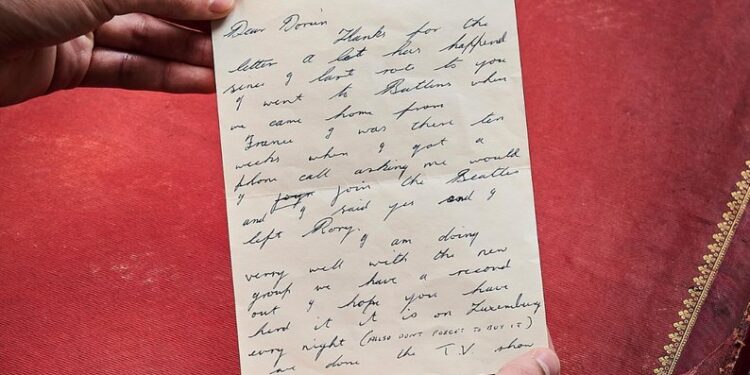 Dear Doreen
Thanks for the
letter a lot has happend
sence I last rote to you
I went to Butlins when
we came home from
France I was there ten
weeks when I got a
phone call asking me would
I join the Beatles
and I said yes and I
left Rory.
I am doing
verry well with the new
group we have a record
out I hope you have
herd it it is on Luxemburg
evry night (ALLSO DONT FORGET TO BUY IT)
we done the T.V. show